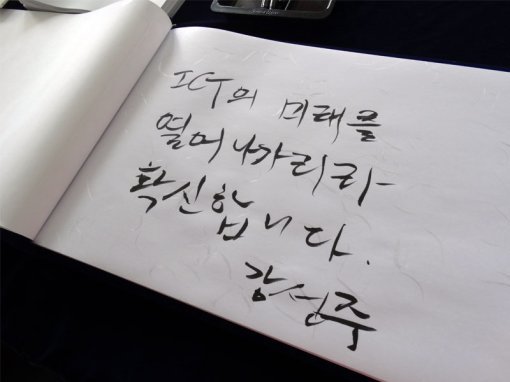 ICT의 미래를
열며 나가리라
확신합니다.
강성주